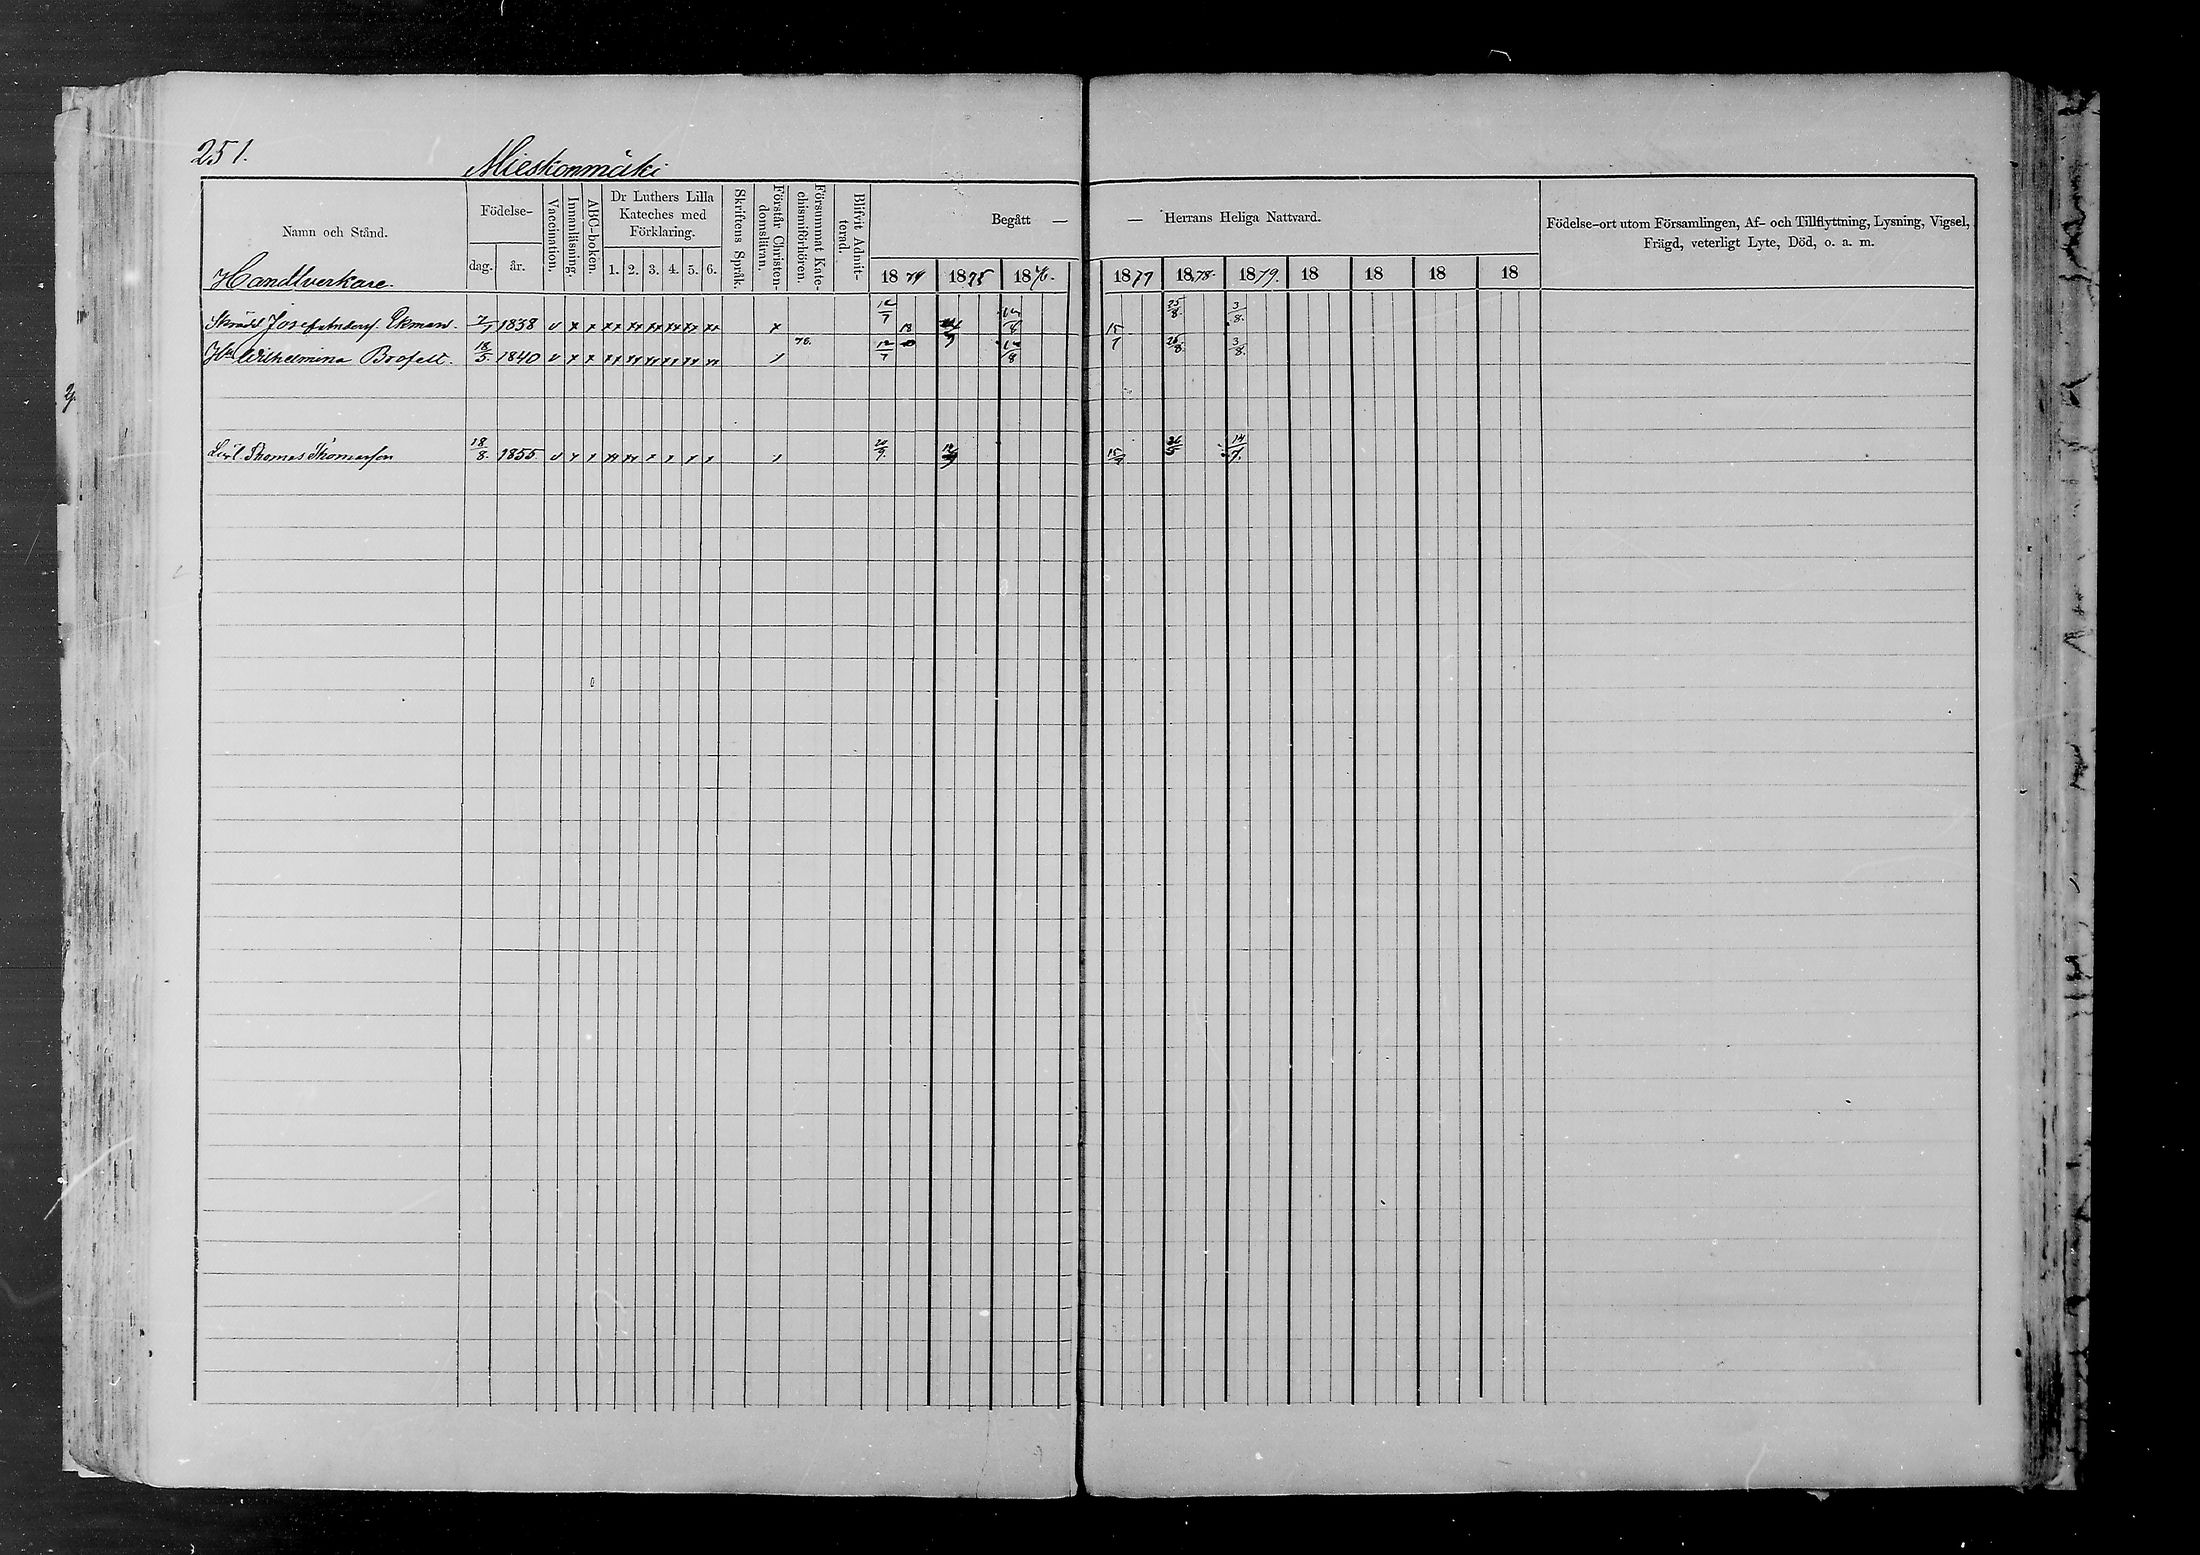 251.
Mieskonmäki
Namn och Stånd.
Födelse-
dag. år.
Vaccination.
Innanläsning.
ABC-boken.
Dr Luthers Lilla
Kateches med
Förklaring.
1. 2. 3. 4. 5. 6.
Skriftens Språk.
Förstår Christen-
domsläran.
Försummat Kate-
chismiförhören.
Blifvit Admit-
terad.
Begått — — Herrans Heliga Nattvard.
1874 1875 1876. 1877 1878. 1879. 18 18 18 18
Födelse-ort utom Församlingen, Af- och Tillflyttning, Lysning, Vigsel,
Frägd, veterligt Lyte, Död, o. a. m.
Handtverkare.
Josef Andersf. Ekman. 1838 v x x xx xx xx xx xx xx x 12/7 25/8 3/8.
Hu Wilhelmina Brofelt. 18/5 1840 v x x xx xx xx xx xx xx / 76. 12/7 26/8 3/8.
Thomas Thomasson 18/8. 1855 v 15/7 26/5 14/7.